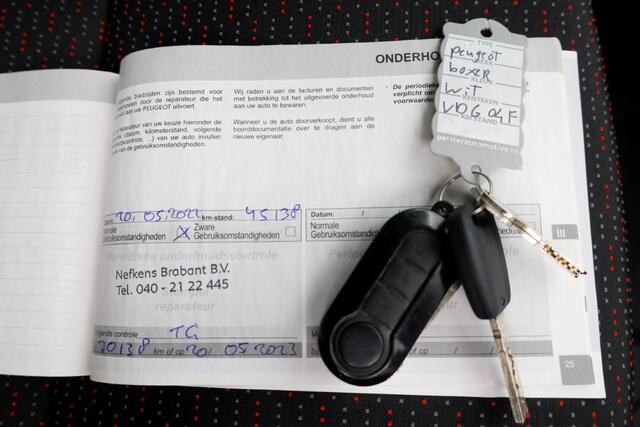 ONDERHO
gende bladzijden zijn bestemd voor
empelen door de reparateur die het
d aan uw PEUGEOT uitvoert.
reparateur van uw keuze hieronder de
(datum, kilometerstand, volgende
controle, ...) van uw auto invullen
van de gebruiksomstandigheden.
Wij raden u aan de facturen en documenten
met betrekking tot het uitgevoerde onderhoud
aan uw auto te bewaren.
Wanneer u de auto doorverkoopt, dient u alle
boorddocumentatie over te dragen aan de
nieuwe eigenaar.
De periodieke
verplicht om
voorwaarde
TYPE
peugeot
boxer
KLEUR
wit
KENTEKEN
VDG 04 F
KM STAND
pelsterautomotive.nl
20, 05, 2022 km-stand: 45138
Normale
Gebruiksomstandigheden
Zware
Gebruiksomstandigheden
Periodieke onderhoudscontrole
Nefkens Brabant B.V.
Tel. 040 - 21 22 445
Stempel
reparateur
volgende controle TG
20138 km of op 20, 05 2023
Datum: /
Normale
Gebruiksomstandigheden
III
25